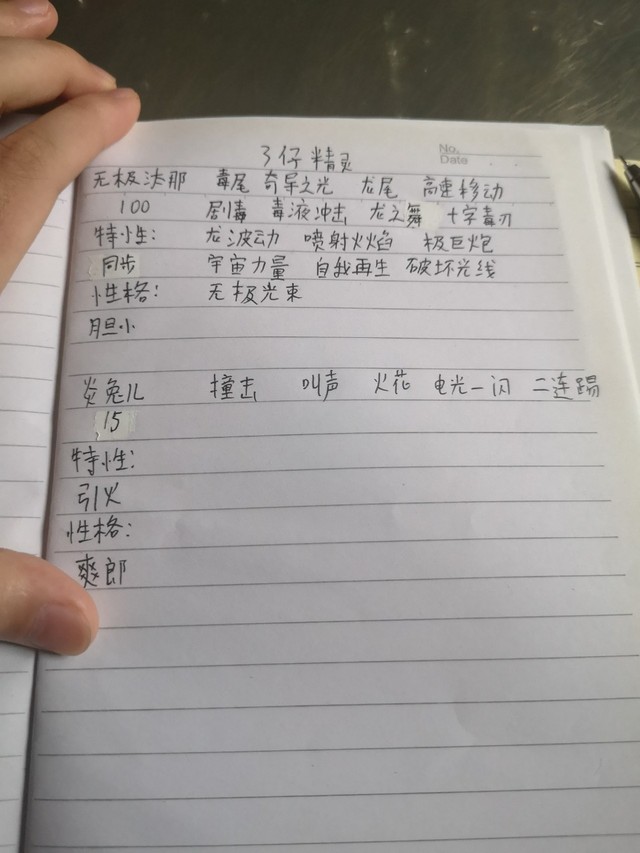 3仔精灵
No.
Date
无极汰那 毒尾 奇异之光 龙尾 高速移动
100 剧毒 毒液冲击 龙之舞 十字毒刃
特性: 龙波动 喷射火焰 极巨炮
同步 宇宙力量 自我再生 破坏光线
性格: 无极光束
胆小
炎兔儿 撞击 叫声 火花 电光一闪 二连踢
15
特性:
引火
性格:
爽郎